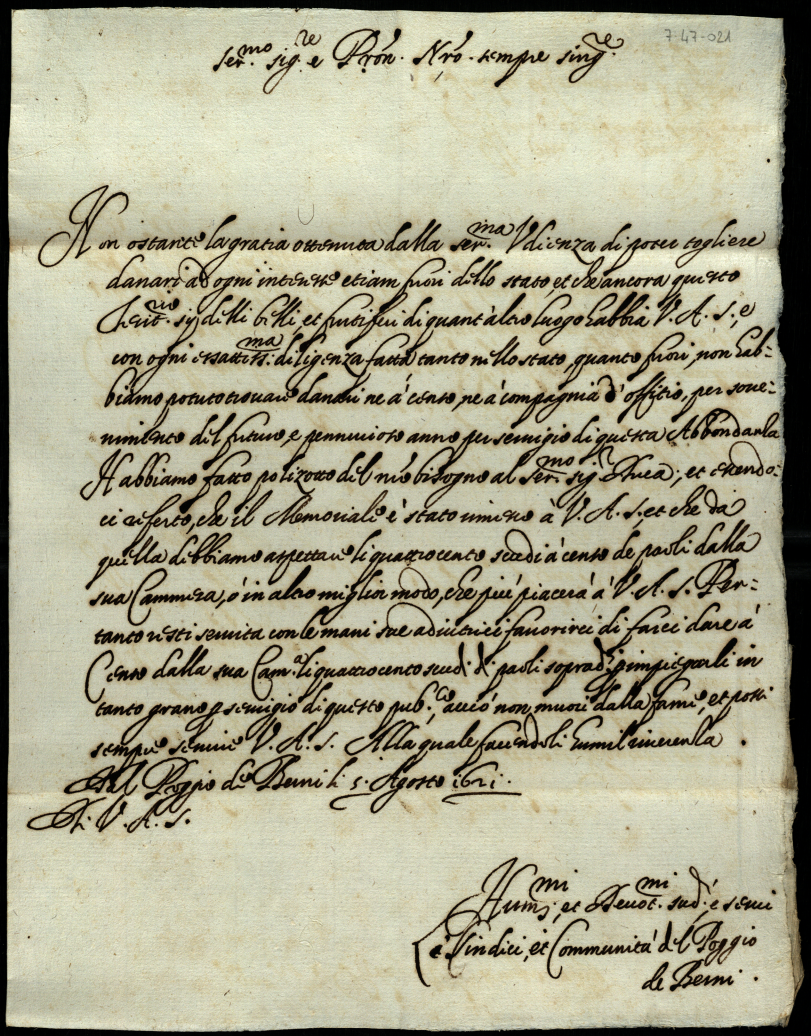 7-47-021
Ser.mo sig.re e Prôn. Nrô. sempre sing.re
Non ostante la gratia ottenuta dalla ser.ma Udienza di poter togliere
danari ad ogni interesse etiam fuori dello stato, et che ancora questo
sij delli belli, et frutiferi di quant'altro luogo habbia V. A. S., e
con ogni essattiss.ma diligenza fatta tanto nello stato, quanto fuori, non hab-
biamo potuto trovare danari ne à cento, ne à compagnia d'offitio, per sove-
nimento del futuro, e pennurioso anno per servigio di questa Abbondanza
Habbiamo fatto polizotto del nrô bisogno al ser.mo sig.r Duca; et essendo-
ci referto, che il Memoriale è stato rimesso à V. A. S., et che da
quella debbiamo aspettare li quattrocento scudi à censo de paoli dalla
sua Cammera, ò in altro miglior modo, che più piacerà à V. A. S. Per-
tanto resti servita con le mani sue adiutrici favorirci di farci dare à
Censo dalla sua Cam.a li quattrocento scudi di paoli sopradi. p impiegarli in
tanto grano p servigio di questo pub.co, acciò non muori dalla fame, et possi
sempre servire V. A. S. Alla quale facendoli humil riverenza.
Dal Poggio de Berni li 5. Agosto 1621.
Di V. A. S.
Hum.mi, et Devot.mi sud.i e servi
i Sindici, et Communità del Poggio
de Berni.